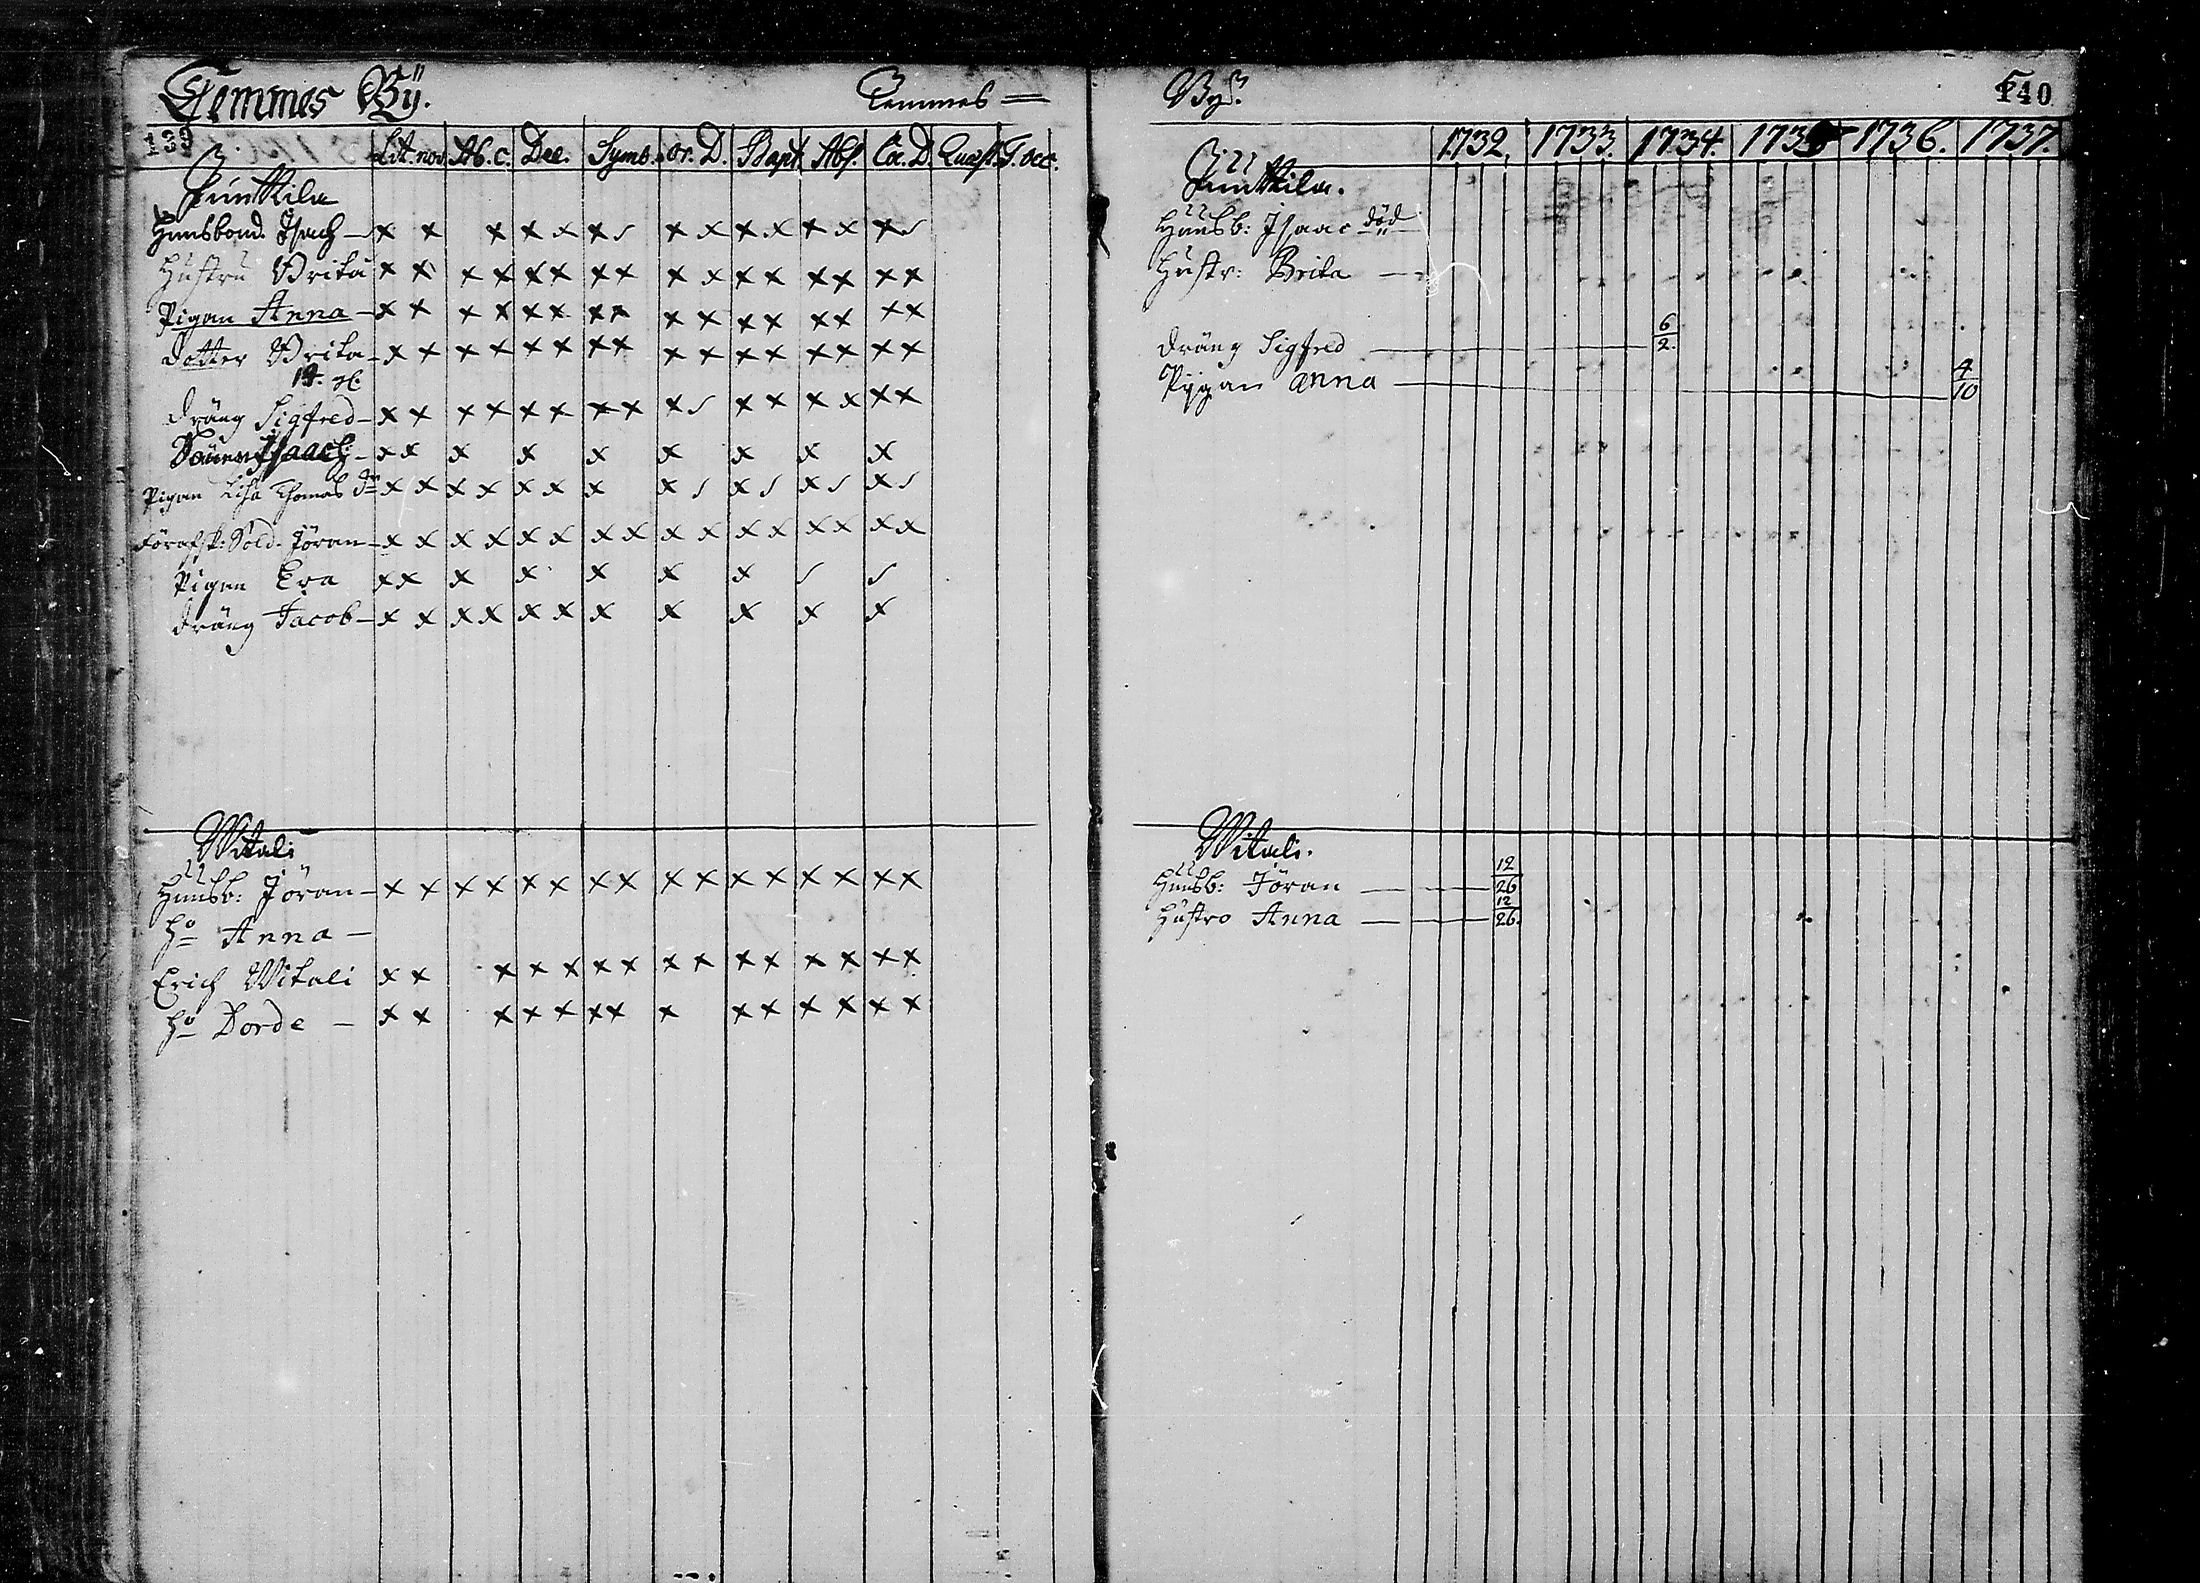 Temmes Bÿ. Temmes
139
Lit. nov. Ab. c. Dec. Symb. or. D. Bapt. Abs. Cœ. D. Quæst. T. œc.
Junttila
Huusbond. Isach — x x x x x x s x x x x x x x s
Hustru Brita x x x x x x x x x x x x x x x x
Pigan Anna — x x x x x x x x x x x x x x x x
dotter Brita — x x x x x x x x x x x x x x x x
dräng Sigfred — x x x x x x x x x s x x x x x x
Isach — x x x x x x x x x
Pigan Lisa Thomas dr x x x x x x x x s x s x s x s
Sold. Jöran — x x x x x x x x x x x x x x x x
Pigan Eva x x x x x x x s s
dräng Jacob — x x x x x x x x x x x
Witali
Huusb: Jöran — x x x x x x x x x x x x x x x x
Ho Anna —
Erich Witali x x x x x x x x x x x x x x x
Ho Dorde — x x x x x x x x x x x x x x
Byÿ. 140
1732. 1733. 1734. 1735 1736. 1737.
Junttila.
Huusb: Isaac död
Hustr: Brita —
dräng Sigfred — 6/2.
Pÿgan Anna — 4/10
Witali.
Huusb: Jöran — 12/26
Hustro Anna — 12/26.